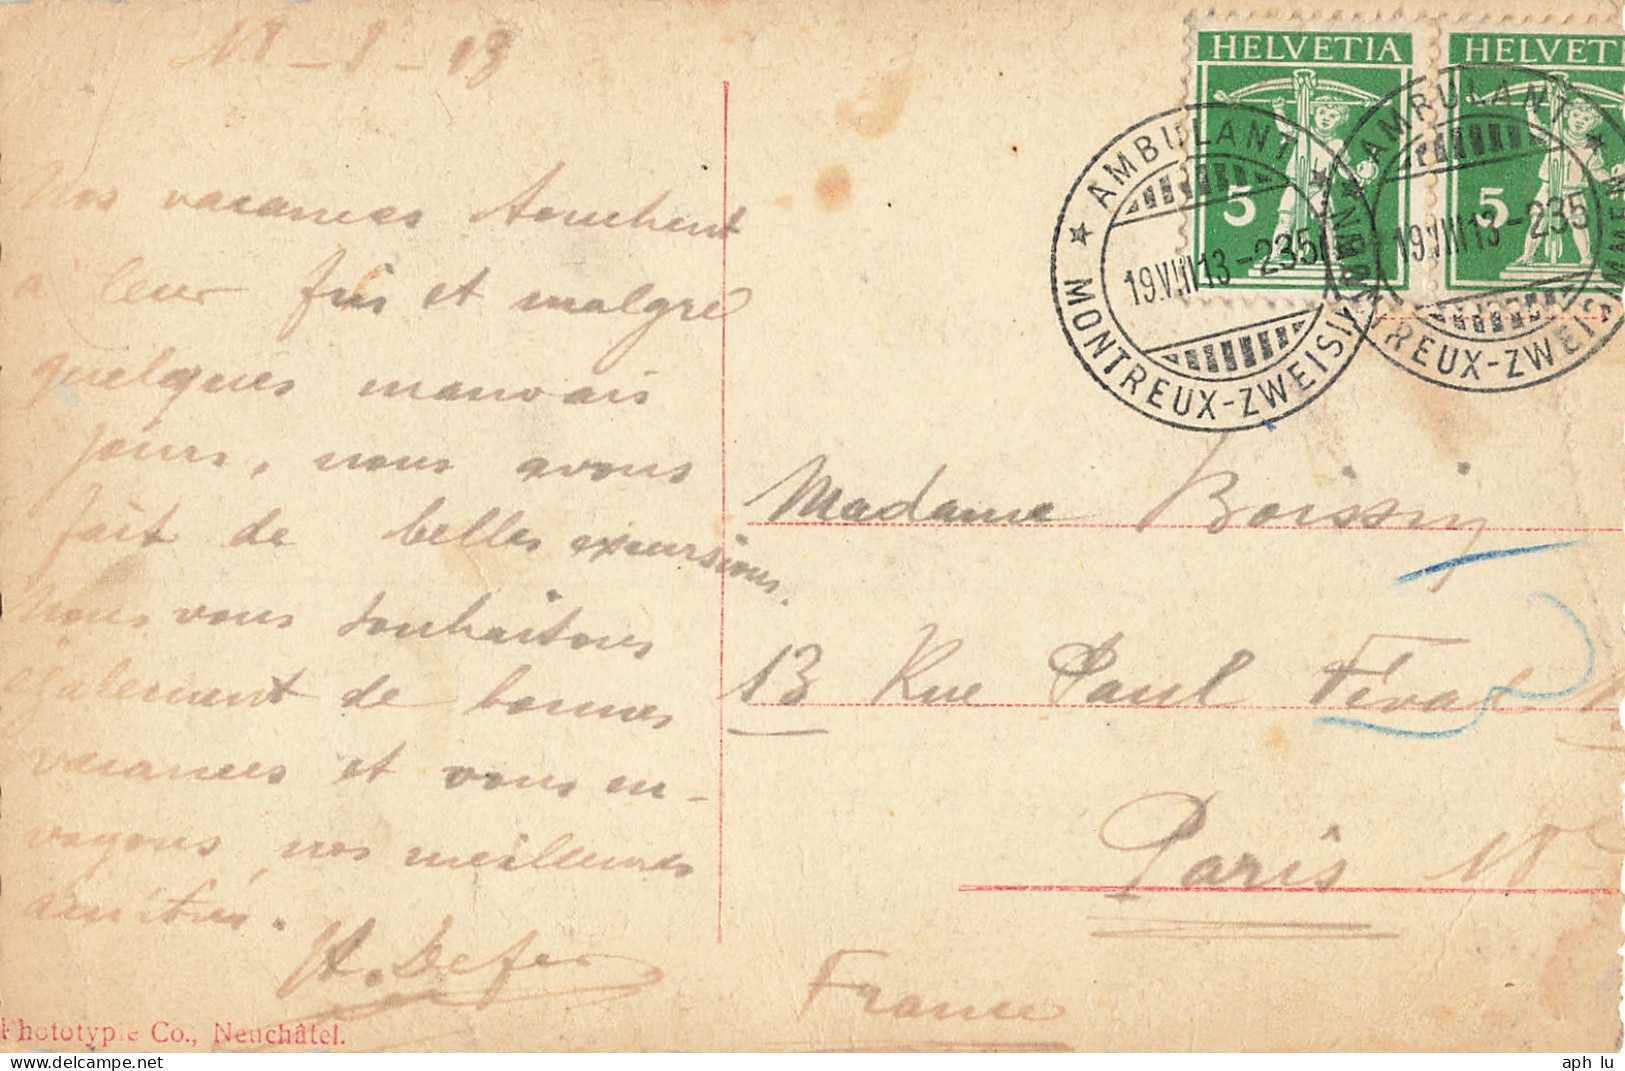 18 - 8 - 13
Nos vacances touchent
à leur fin et malgré
quelques mauvais
jours, nous avons
fait de belles excursions.
Nous vous souhaitons
également de bonnes
vacances et vous en-
voyons nos meilleures
amitiés.
Phototypie Co., Neuchâtel.
HELVETIA
5
HELVETI
5
AMBULANT
MONTREUX-ZWEISI
19.VIII 13-235
AMBULANT
TREUX-ZWEIS
19.VIII 13-235
Madame Boissin
13 Rue Paul Féval
Paris
France
aph lu